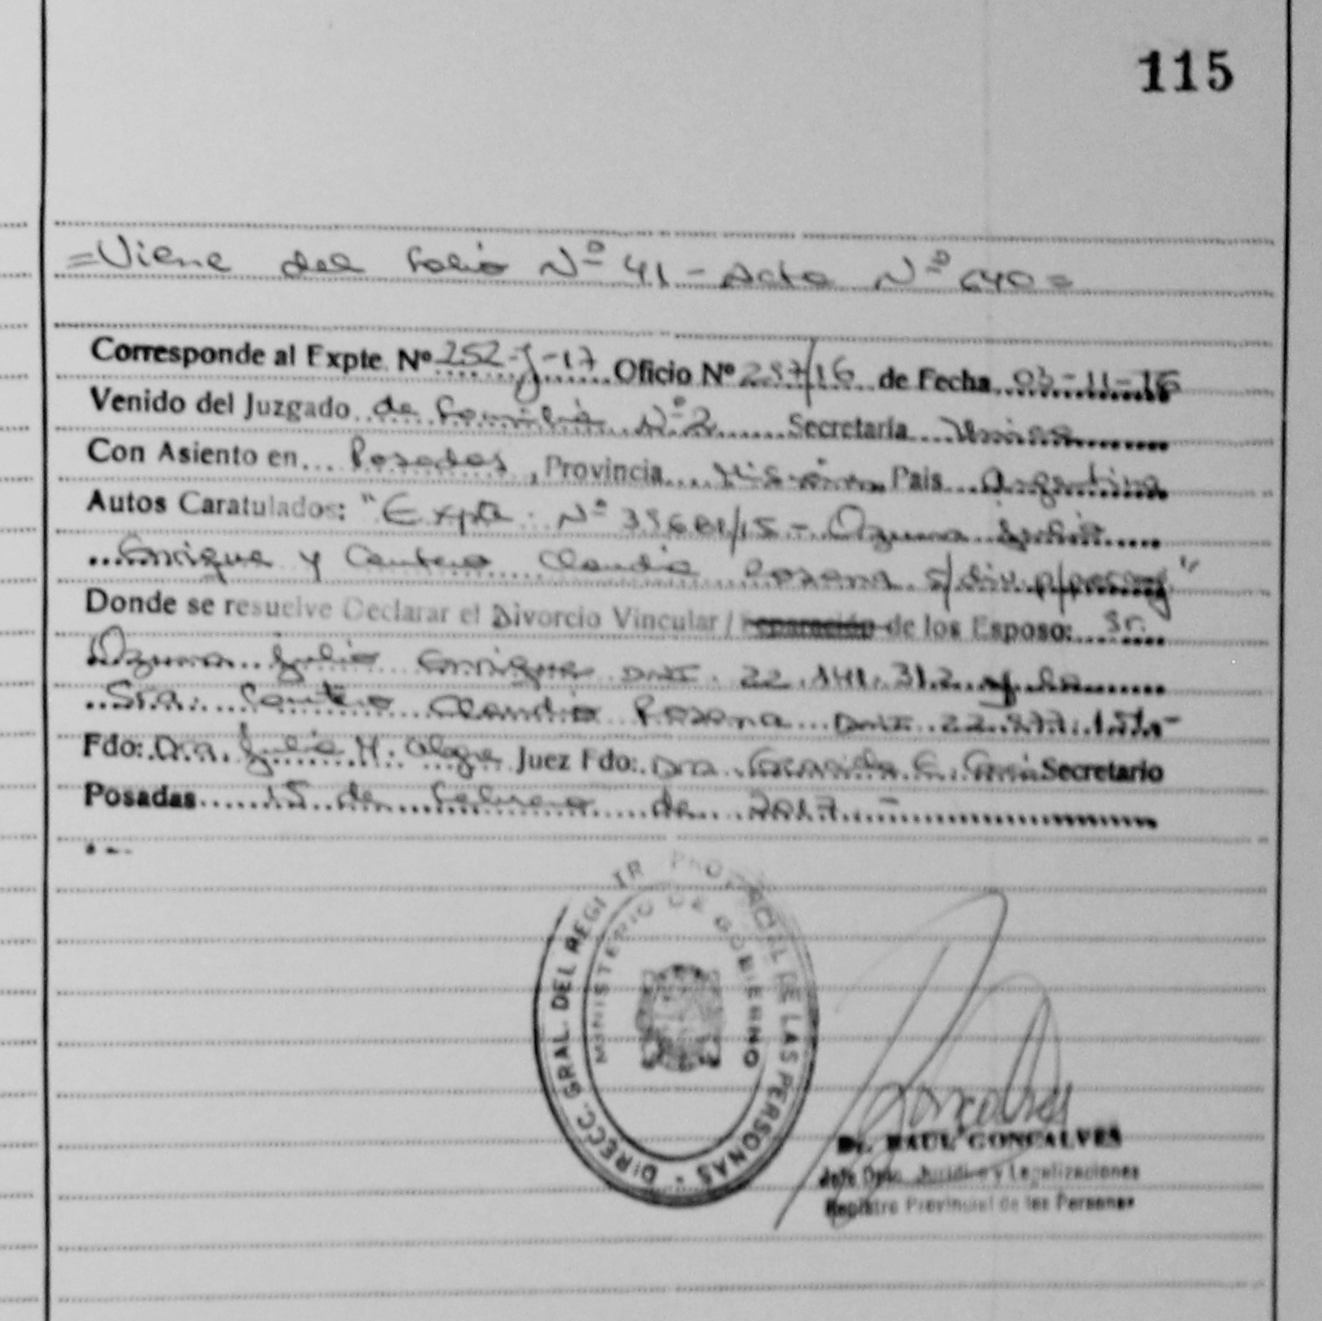 115
=Viene del folio Nº 41 - Acta Nº 640=
Corresponde al Expte. Nº 252-J-17 Oficio Nº 297/16 de Fecha 03-11-16
Venido del Juzgado de Familia Nº 2 Secretaría Única
Con Asiento en Posadas, Provincia Misiones País Argentina
Autos Caratulados: "Expte. Nº /15 - Ozuna Julio
Enrique y Centeno Claudia Rozana s/div. p/presentac"
Donde se resuelve Declarar el Divorcio Vincular / Separación de los Esposo: Sr.
Ozuna Julio Enrique DNI. 22.141.312 y la
Sra. Centeno Claudia Rozana DNI 22.
Fdo: Dra. Julia H. Alegre Juez Fdo: Dra. Secretario
Posadas 15 de Febrero de 2017.-
DIRECC. GRAL. DEL REGISTR PROVINCIAL DE LAS PERSONAS
MINISTERIO DE GOBIERNO
Goncalves
Dr. RAUL GONCALVES
Jefe Dpto. Jurídico y Legalizaciones
Registro Provincial de las Personas